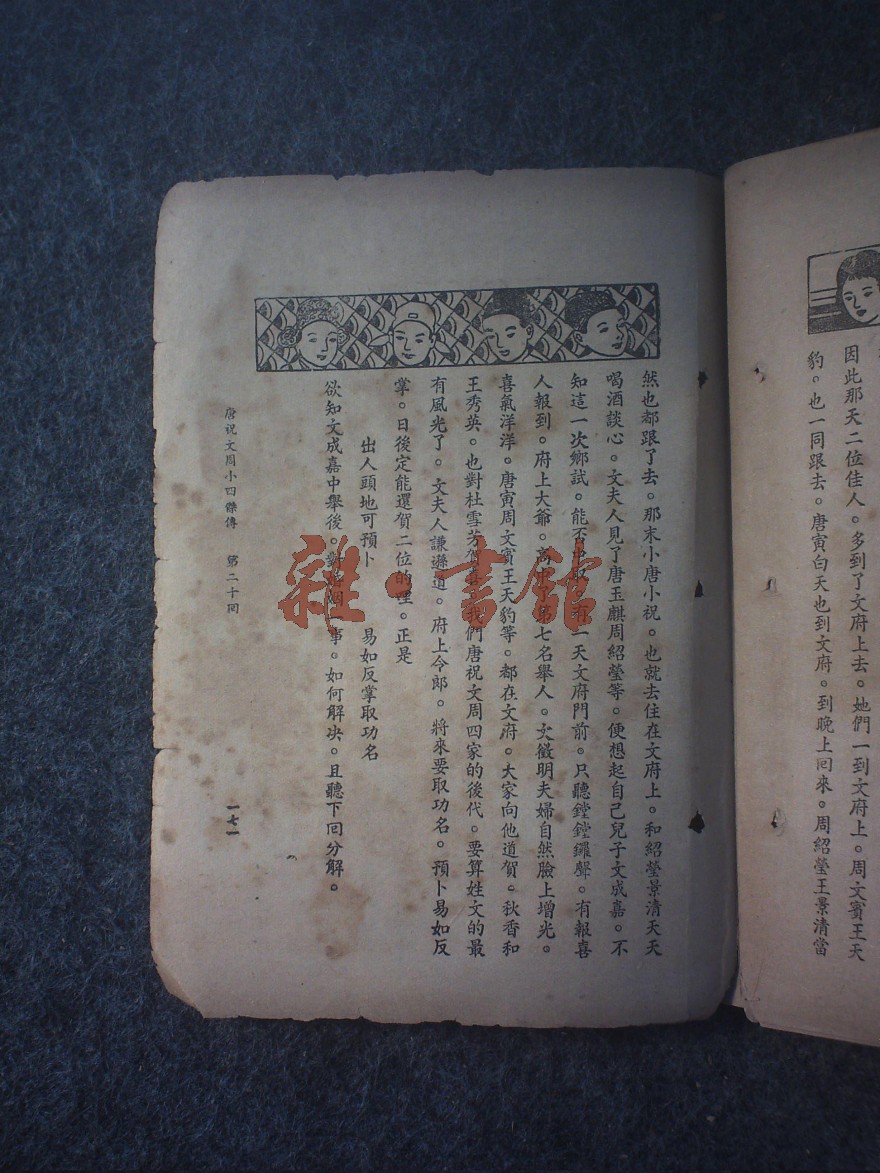 因此那天二位佳人。多到了文府上去。她們一到文府上。周文賓王天
豹。也一同跟去。唐寅白天也到文府。到晚上回來。周紹瑩王景清當
然也都跟了去。那末小唐小祝。也就去住在文府上。和紹瑩景清天天
喝酒談心。文夫人見了唐玉麒周紹瑩等。便想起自己兒子文成嘉。不
知這一次鄉試。能否中取。有一天文府門前。只聽鏜鏜鑼聲。有報喜
人報到。府上大爺。高中了第七名舉人。文徵明夫婦自然臉上增光。
喜氣洋洋。唐寅周文賓王天豹等。都在文府。大家向他道賀。秋香和
王秀英。也對杜雪芳賀 我們唐祝文周四家的後代。要算姓文的最
有風光了。文夫人謙遜道。府上令郎。將來要取功名。預卜易如反
掌。日後定能還賀二位的哩。正是
出人頭地可預卜 易如反掌取功名
欲知文成嘉中舉後。對 事。如何解决。且聽下回分解。
唐祝文周小四傑傳 第二十回
一七一
雜·書館